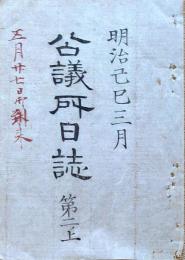 明治己巳三月
公議所日誌 第二上
五月廿七日